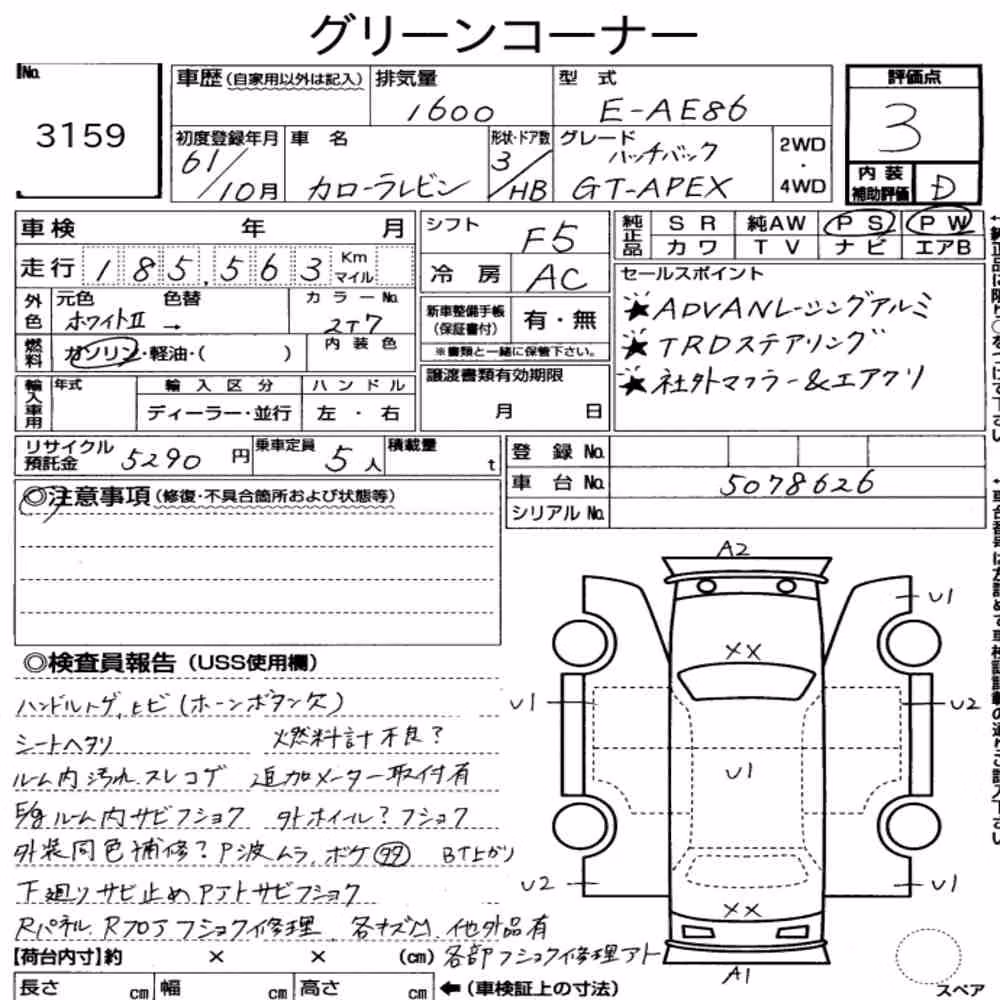 グリーンコーナー
No.
3159
車歴(自家用以外は記入)
排気量
1600
型 式
E-AE86
評価点
3
初度登録年月
61/10月
車 名
カローラレビン
形状・ドア数
3/HB
グレード
ハッチバック
GT-APEX
2WD
・
4WD
内 装
補助評価
D
車検 年 月
走行 185,563 Km
マイル
シフト
F5
冷 房
AC
純正品
S R 純AW P S P W
カ ワ T V ナ ビ エアB
外色
元色 色替
ホワイトII →
カラーNo.
2T7
燃料
ガソリン・軽油・( )
内 装 色
新車整備手帳
(保証書付)
有・無
※書類と一緒に保管下さい。
セールスポイント
★ADVANレーシングアルミ
★TRDステアリング
★社外マフラー&エアクリ
輸入車用
年式
輸 入 区 分
ディーラー・並行
ハ ン ド ル
左 ・ 右
譲渡書類有効期限
月 日
リサイクル
預託金 5290 円
乗車定員
5人
積載量
t
登 録 No.
車 台 No. 5078626
シリアル No.
◎注意事項(修復・不具合箇所および状態等)
A2
U1
XX
U1
U2
U1
U2
U1
XX
A1
スペア
◎検査員報告(USS使用欄)
ハンドルトゲ,ヒビ(ホーンボタン欠)
シートヘタリ 燃料計不良?
ルーム内汚れ.スレコゲ 追加メーター取付有
E/g ルーム内サビフショク 外ホイール?フショク
外装同色補修?P波ムラ,ボケ(99) BT上がり
下廻りサビ止めPアトサビフショク
Rパネル,Rフロアフショク修理 各キズM,他外品有
各部フショク修理アト
【荷台内寸】約 × × (cm)
長さ cm 幅 cm 高さ cm ←(車検証上の寸法)